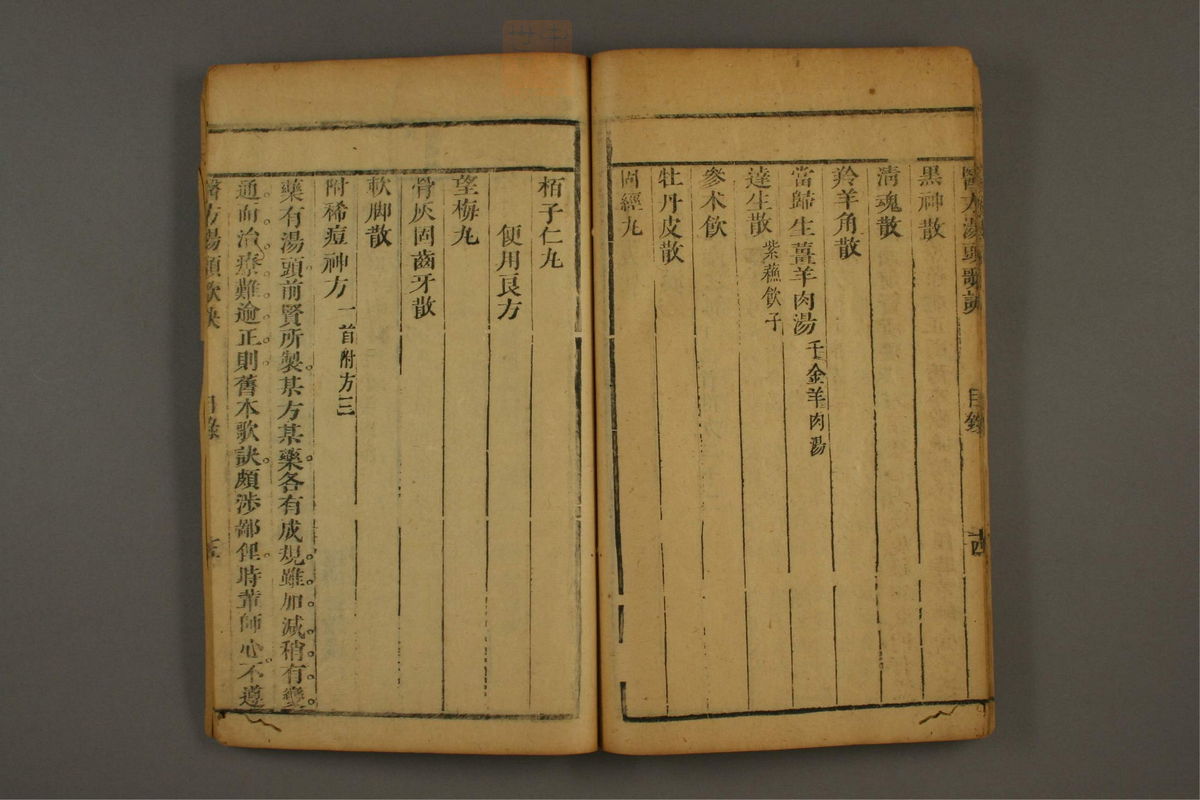 醫方湯頭歌訣 目錄 古
黑神散
清魂散
羚羊角散
當歸生薑羊肉湯 千金羊肉湯
達生散 紫蘓飲子
參术飲
牡丹皮散
固經丸
栢子仁丸
便用良方
望梅丸
骨灰固齒牙散
軟脚散
附稀痘神方 一首附方三
藥有湯頭前賢所製某方某藥各有成規雖加減稍有變
通而治療難逾正則舊本歌訣頗涉鄙俚時輩師心不遵
醫方湯頭歌訣 目錄